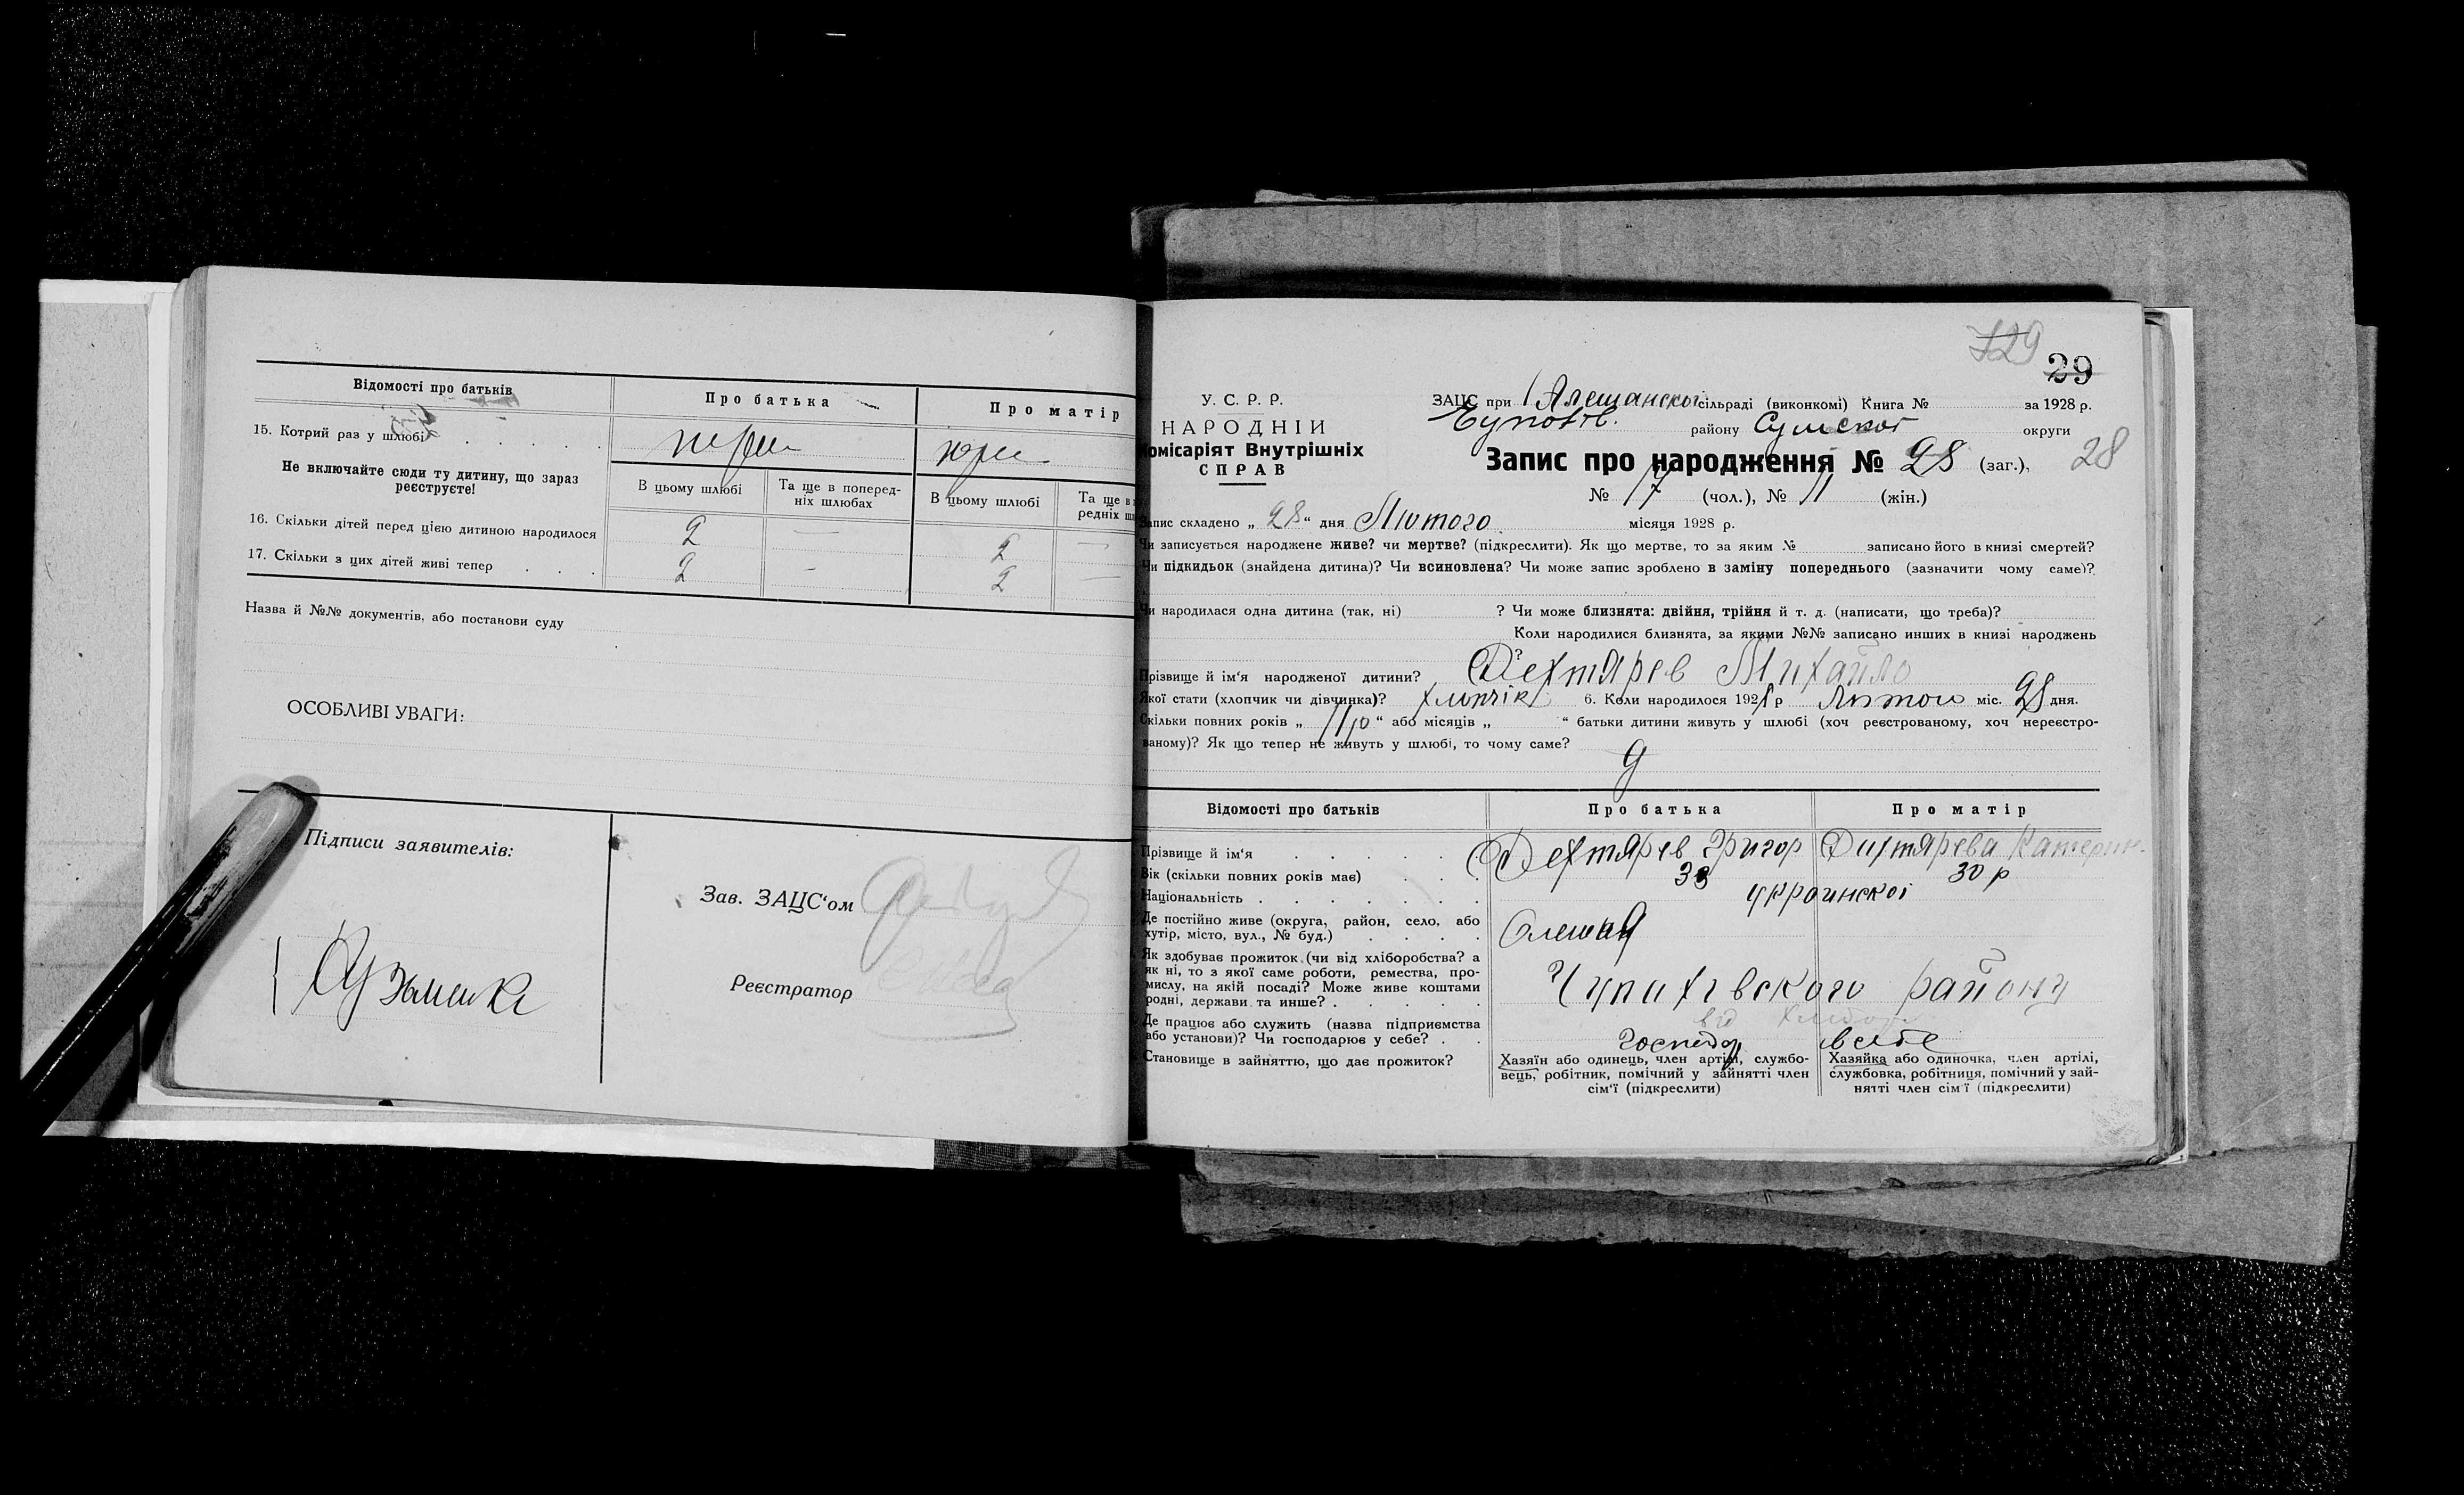 Відомості про батьків
Про батька
Про матір
15. Котрий раз у шлюбі
перш
Не включайте сюди ту дитину, що зараз
реєструєте!
В цьому шлюбі
Та ще в поперед-
ніх шлюбах
В цьому шлюбі
Та ще в
редніх
16. Скільки дітей перед цією дитиною народилося
2 — 2 —
17. Скільки з цих дітей живі тепер
2 - 2 —
Назва й №№ документів, або постанови суду
ОСОБЛИВІ УВАГИ:
Підписи заявителів:
Зав. ЗАЦС'ом
Реєстратор
729
29
У. С. Р. Р.
НАРОДНІЙ
омісаріят Внутрішніх
СПРАВ
ЗАЦС при Алешанскої сільраді (виконкомі) Книга № за 1928 р.
району Сумскої округи
Запис про народження № 28 (заг.), 28
№ 17 (чол.), № 11 (жін.)
Запис складено „ 28 “ дня Лютого місяця 1928 р.
Чи записується народжене живе? чи мертве? (підкреслити). Як що мертве, то за яким № записано його в книзі смертей?
Чи підкидьок (знайдена дитина)? Чи всиновлена? Чи може запис зроблено в заміну попереднього (зазначити чому саме)?
Чи народилася одна дитина (так, ні) ? Чи може близнята: двійня, трійня й т. д. (написати, що треба)?
Коли народилися близнята, за якими №№ записано инших в книзі народжень
?
Прізвище й ім'я народженої дитини? Дехтярев Михайло
Якої стати (хлопчик чи дівчинка)? хлопчік 6. Коли народилося 1928 р Лютого міс. 28 дня.
Скільки повних років „ “ або місяців „ “ батьки дитини живуть у шлюбі (хоч реєстрованому, хоч нереєстро-
ваному)? Як що тепер не живуть у шлюбі, то чому саме?
Відомості про батьків
Про батька
Про матір
Прізвище й ім'я
Дехтярев Григор
Дихтярева Катерин
Вік (скільки повних років має)
30 р
Національність
украинскоі
Де постійно живе (округа, район, село, або
хутір, місто, вул., № буд.)
Олешня
Як здобуває прожиток (чи від хліборобства? а
як ні, то з якої саме роботи, ремества, про-
мислу, на якій посаді? Може живе коштами
родні, держави та инше?
Чупахевского району
від
Де працює або служить (назва підприємства
або установи)? Чи господарює у себе?
Господ в себе
Становище в зайняттю, що дає прожиток?
Хазяїн або одинець, член артілі, службо-
вець, робітник, помічний у зайнятті член
сім'ї (підкреслити)
Хазяйка або одиночка, член артілі,
службовка, робітниця, помічний у зай-
нятті член сім'ї (підкреслити)